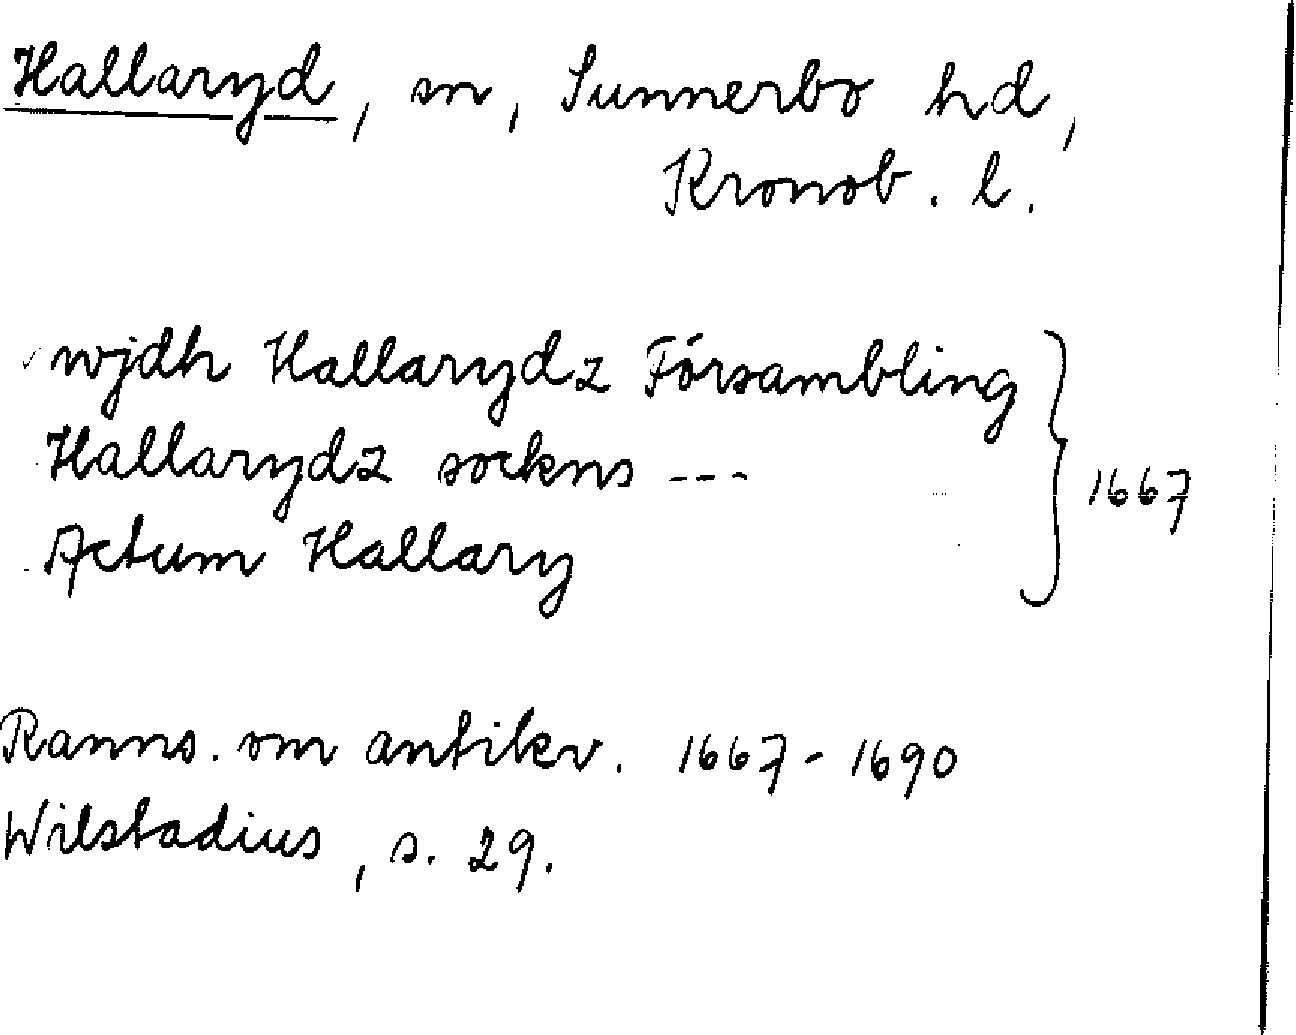 Hallaryd, sn, Sunnerbo hd,
Kronob. l.
wjdh Hallarydz Fórsambling
Hallarydz sockns ---
Actum Hallary
1667
Ranns. om antikv. 1667-1690
Wilstadius, s. 29.